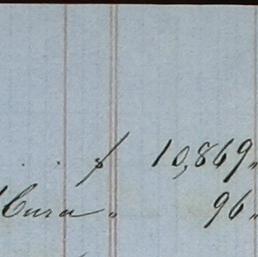 . . $ 10,869 "
Cura " 96 "